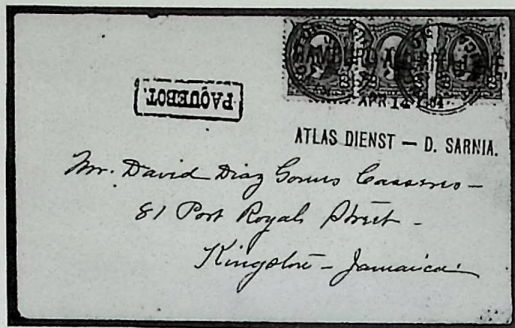 APR 14 04
PAQUEBOT.
ATLAS DIENST — D. SARNIA.
Mr. David Diaz Gomes Casseres —
81 Port Royal Street —
Kingston — Jamaica